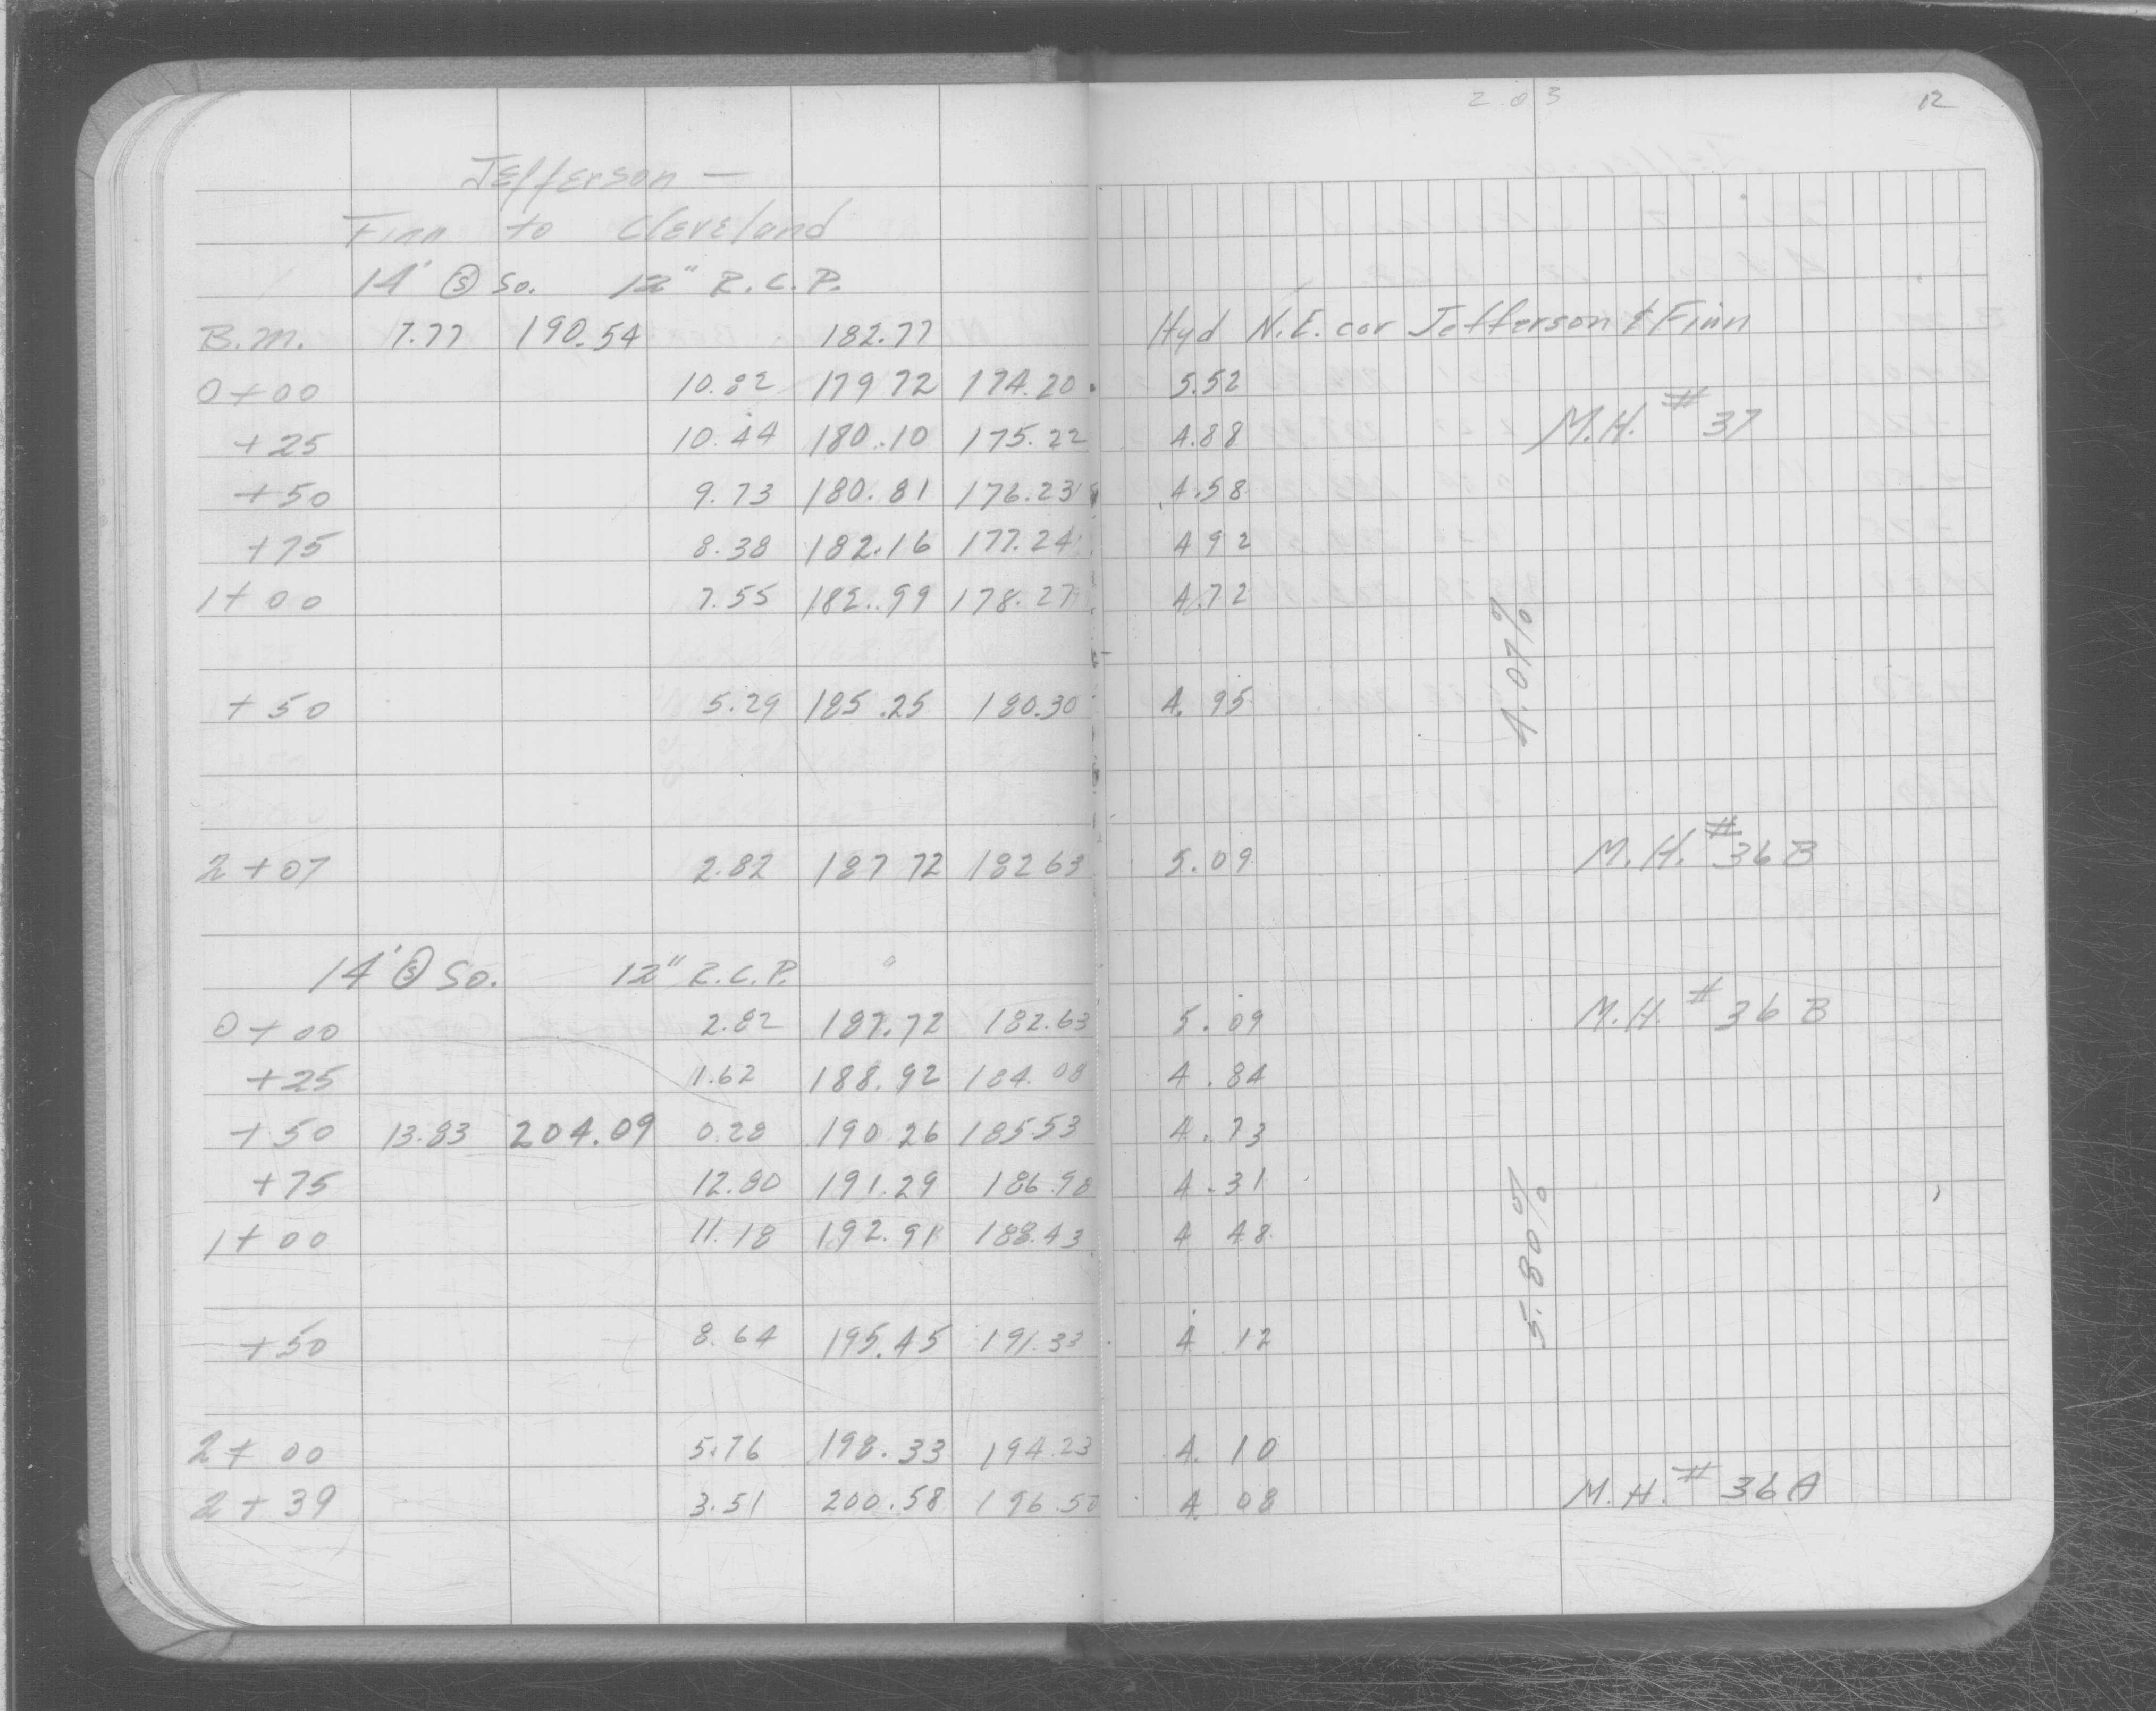 203 12
Jefferson —
Finn to Cleveland
14' Ⓢ So. 12" R.C.P.
B.M. 7.77 190.54 182.77 Hyd N.E. cor Jefferson & Finn
0+00 10.82 179 72 174.20 5.52
+25 10.44 180.10 175.22 4.88 M.H. # 37
+50 9.73 180.81 176.23 4.58
+75 8.38 182.16 177.24 4 92
1+00 7.55 182.99 178.27 4.72
4.07%
+50 5.29 185.25 180.30 4.95
2+07 2.82 187 72 182 63 5.09 M.H. # 36 B
14' Ⓢ So. 12" R.C.P.
0+00 2.82 187.72 182.63 5.09 M.H. # 36 B
+25 1.62 188.92 184.08 4.84
+50 13.83 204.09 0.28 190 26 185 53 4.73
+75 12.80 191.29 186.98 4.31
1+00 11.18 192.91 188.43 4 48
5.80%
+50 8.64 195.45 191.33 4 12
2+00 5.76 198.33 194.23 4.10
2+39 3.51 200.58 196.50 4 08 M.H. # 36A